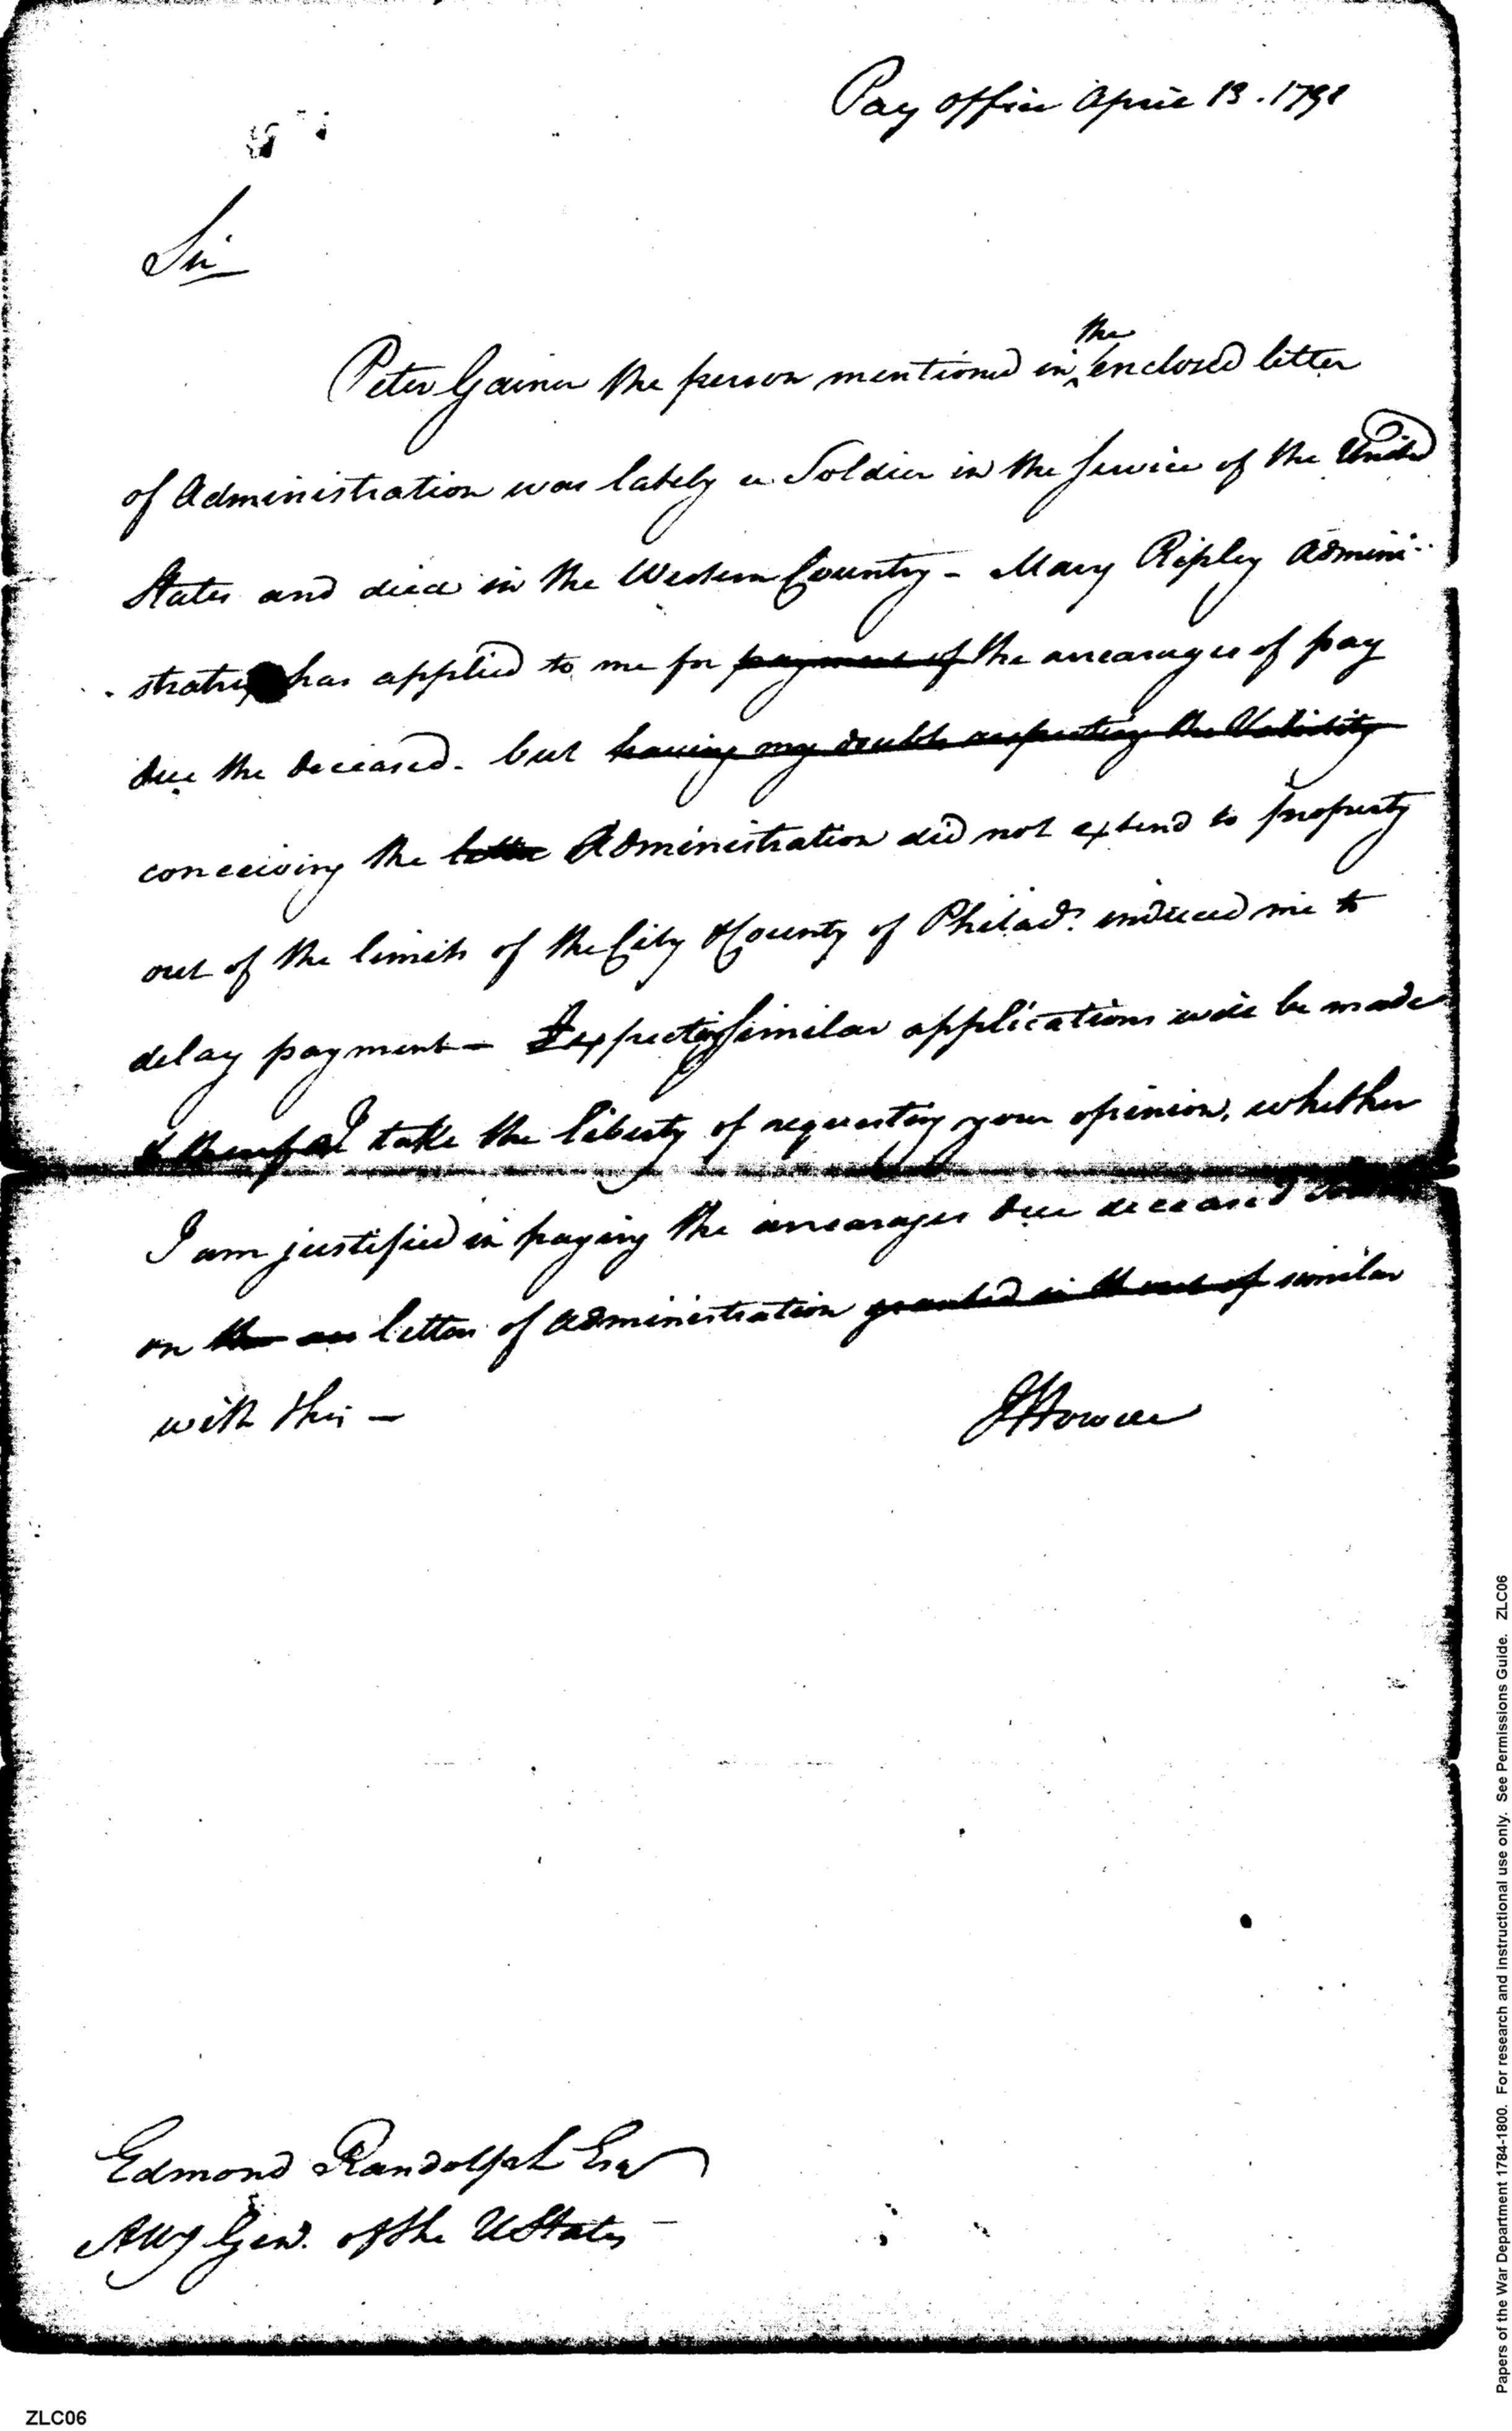 Pay office April 13. 1791
Sir
the
Peter Gainer the person mentioned in ^ enclosed letter
of Administration was lately a Soldier in the Service of the United
States and died in the Western Country - Mary Ripley Admini-
-stratrix has applied to me for payment of the arrearages of pay
due the deceased. but having my doubts respecting the Validity
conceiving the letter Administration did not extend to property
out of the limits of the City & County of Philad? induced me to
delay payment - Expecting similar applications will be made
I therefore I take the liberty of requesting your opinion, whether
I am justified in paying the arrearages due deceased
on the letters of Administration granted in similar
with this -
JHowell
Edmond Randolph Esq
Atty Genl. of the UStates
Papers of the War Department 1784-1800. For research and instructional use only. See Permissions Guide. ZLC06
ZLC06